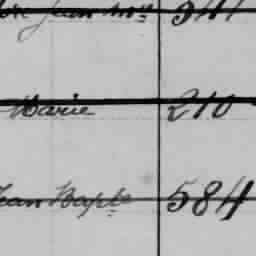 Jean 344
Marie 210
Jean Bapte 584